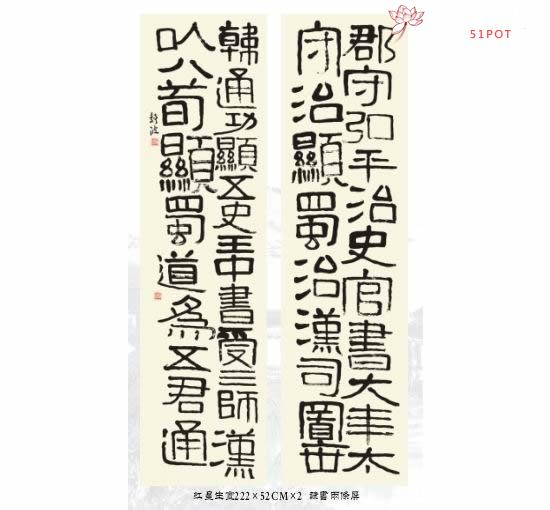 51POT
郡守弘平治史官書大年太
守治顯蜀治漢司圖
韓通功顯五史王中書受三師漢
以八荀顯蜀道為五君通
红星生宣222×52CM×2 隸書兩條屏